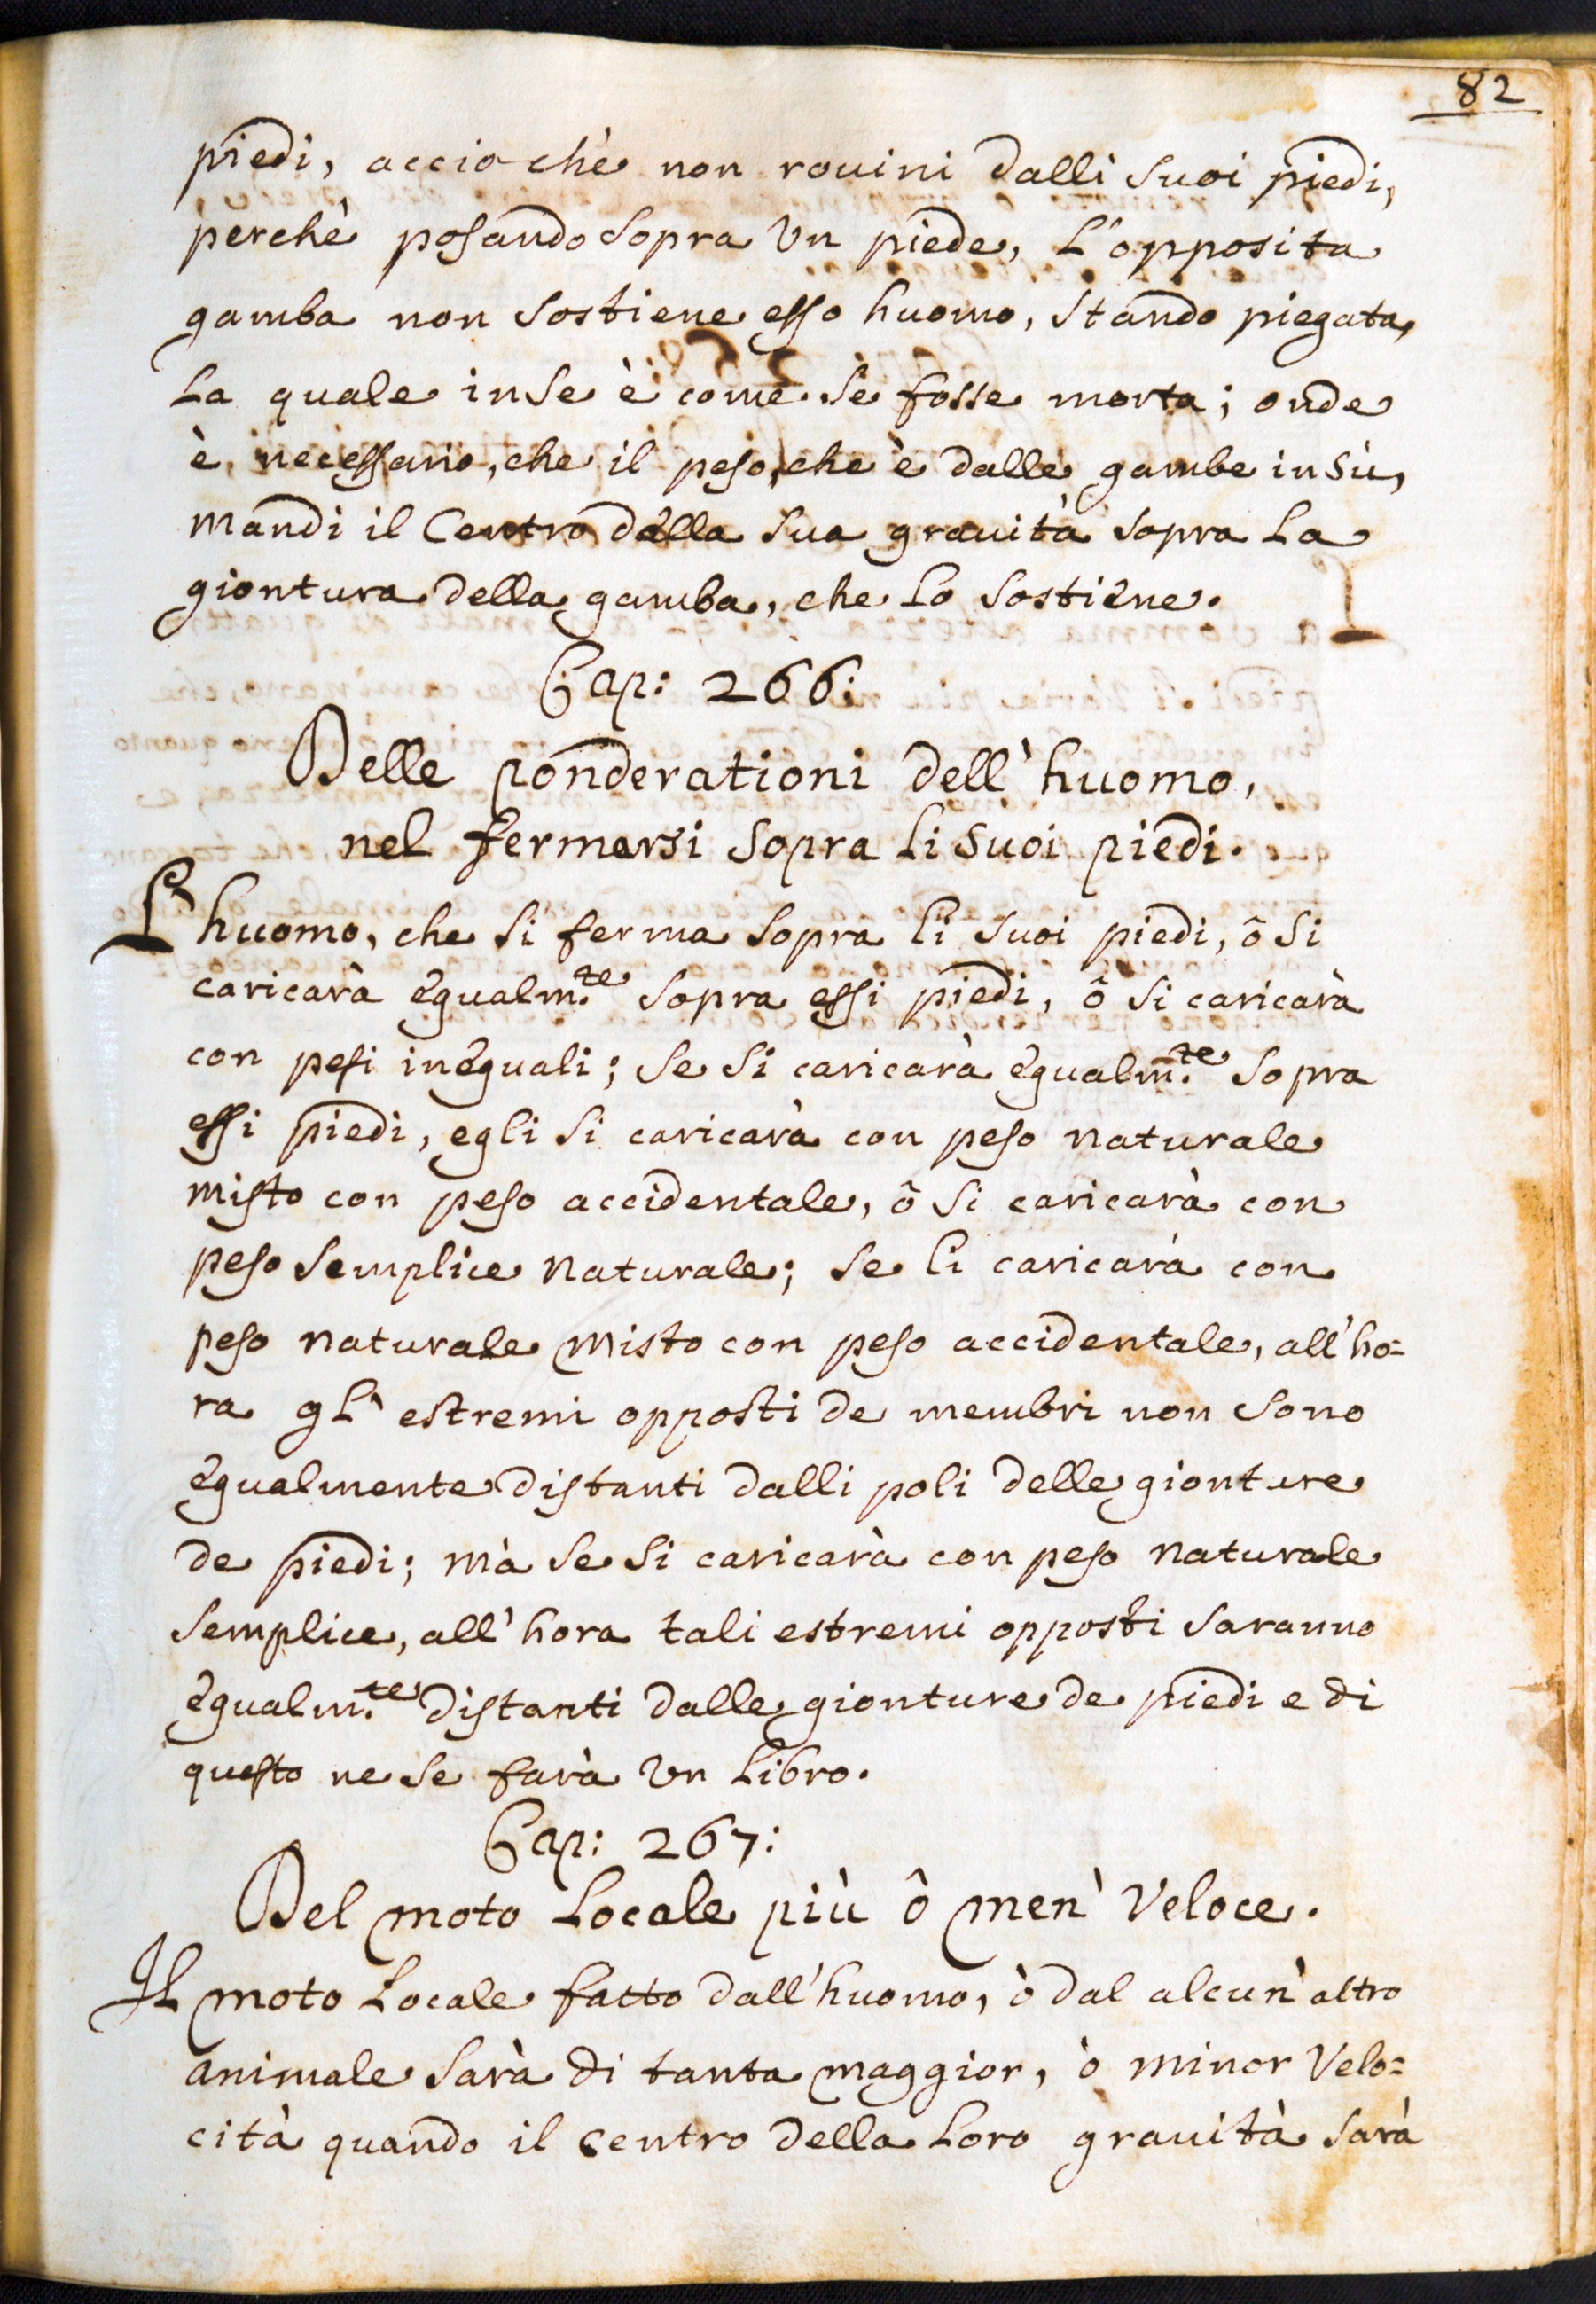 82
piedi, accio chè non rouini dalli suoi piedi,
perchè posando sopra Vn piede, L'opposita
gamba non sostiene esso huomo, stando piegata,
La quale in se è come se fosse morta; onde
è necessario, che il peso, che è dalle gambe in sù,
mandi il Centro della sua grauità sopra La
giontura della gamba, che Lo sostiene.
Cap: 266:
Delle ponderationi dell'huomo,
nel fermarsi sopra Li suoi piedi.
L'huomo, che si ferma sopra li suoi piedi, ô si
caricarà egualm.te sopra essi piedi, ô si caricarà
con pesi ineguali; se si caricarà egualm.te sopra
essi piedi, egli si caricarà con peso naturale
misto con peso accidentale, ô si caricarà con
peso semplice naturale; se li caricarà con
peso naturale misto con peso accidentale, all'ho=
ra gl'estremi opposti de membri non sono
egualmente distanti dalli poli delle gionture
de piedi; mà se si caricarà con peso naturale
semplice, all'hora tali estremi opposti saranno
egualm.te distanti dalle gionture de piedi e di
questo ne se farà Vn Libro.
Cap: 267:
Del moto Locale più ô men' Veloce.
Il moto Locale fatto dall'huomo, ò dal alcun'altro
animale sarà di tanta maggior, ò minor Velo=
cità quando il centro della Loro grauità sarà